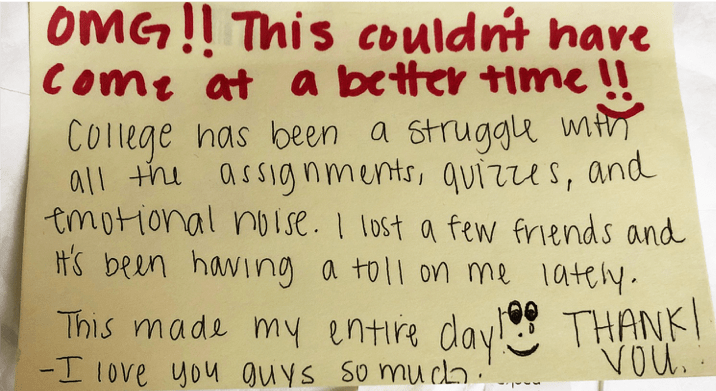 OMG!! This couldn't have
come at a better time!!
College has been a struggle with
all the assignments, quizzes, and
emotional noise. I lost a few friends and
it's been having a toll on me lately.
This made my entire day! THANK
YOU.
-I love you guys so much.